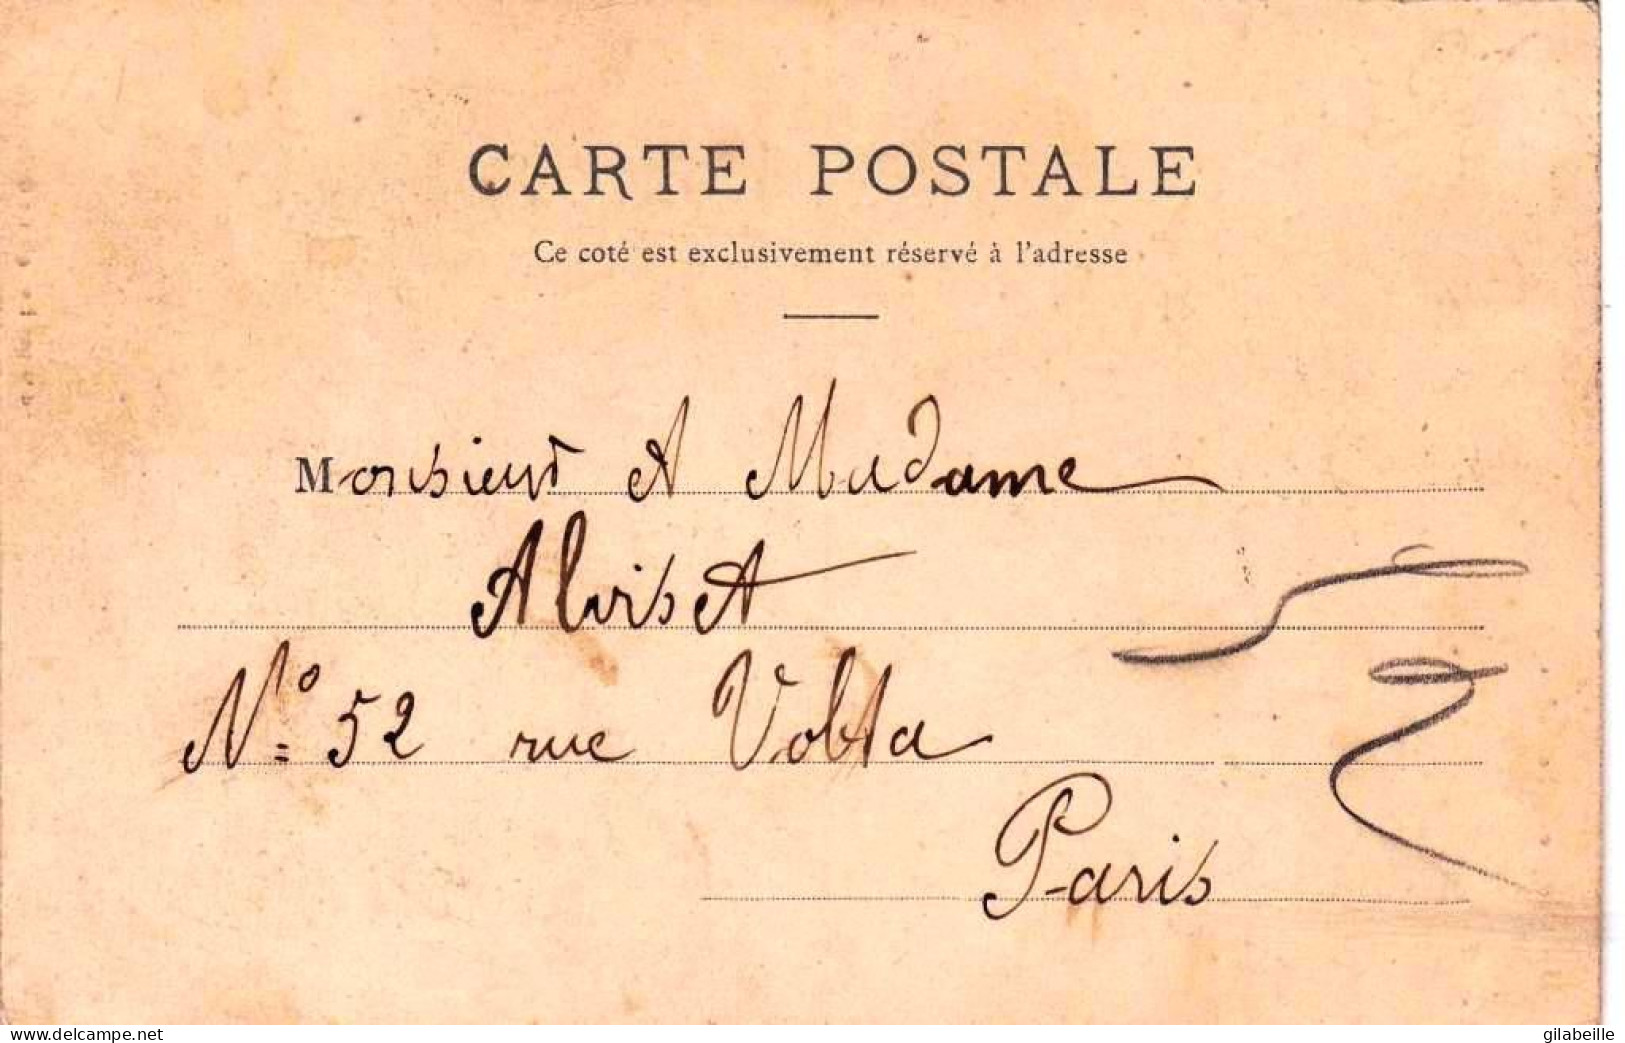 CARTE POSTALE
Ce coté est exclusivement réservé à l'adresse
Monsieur et Madame
Alviset
N° 52 rue Volta
Paris
www.delcampe.net
gilabeille